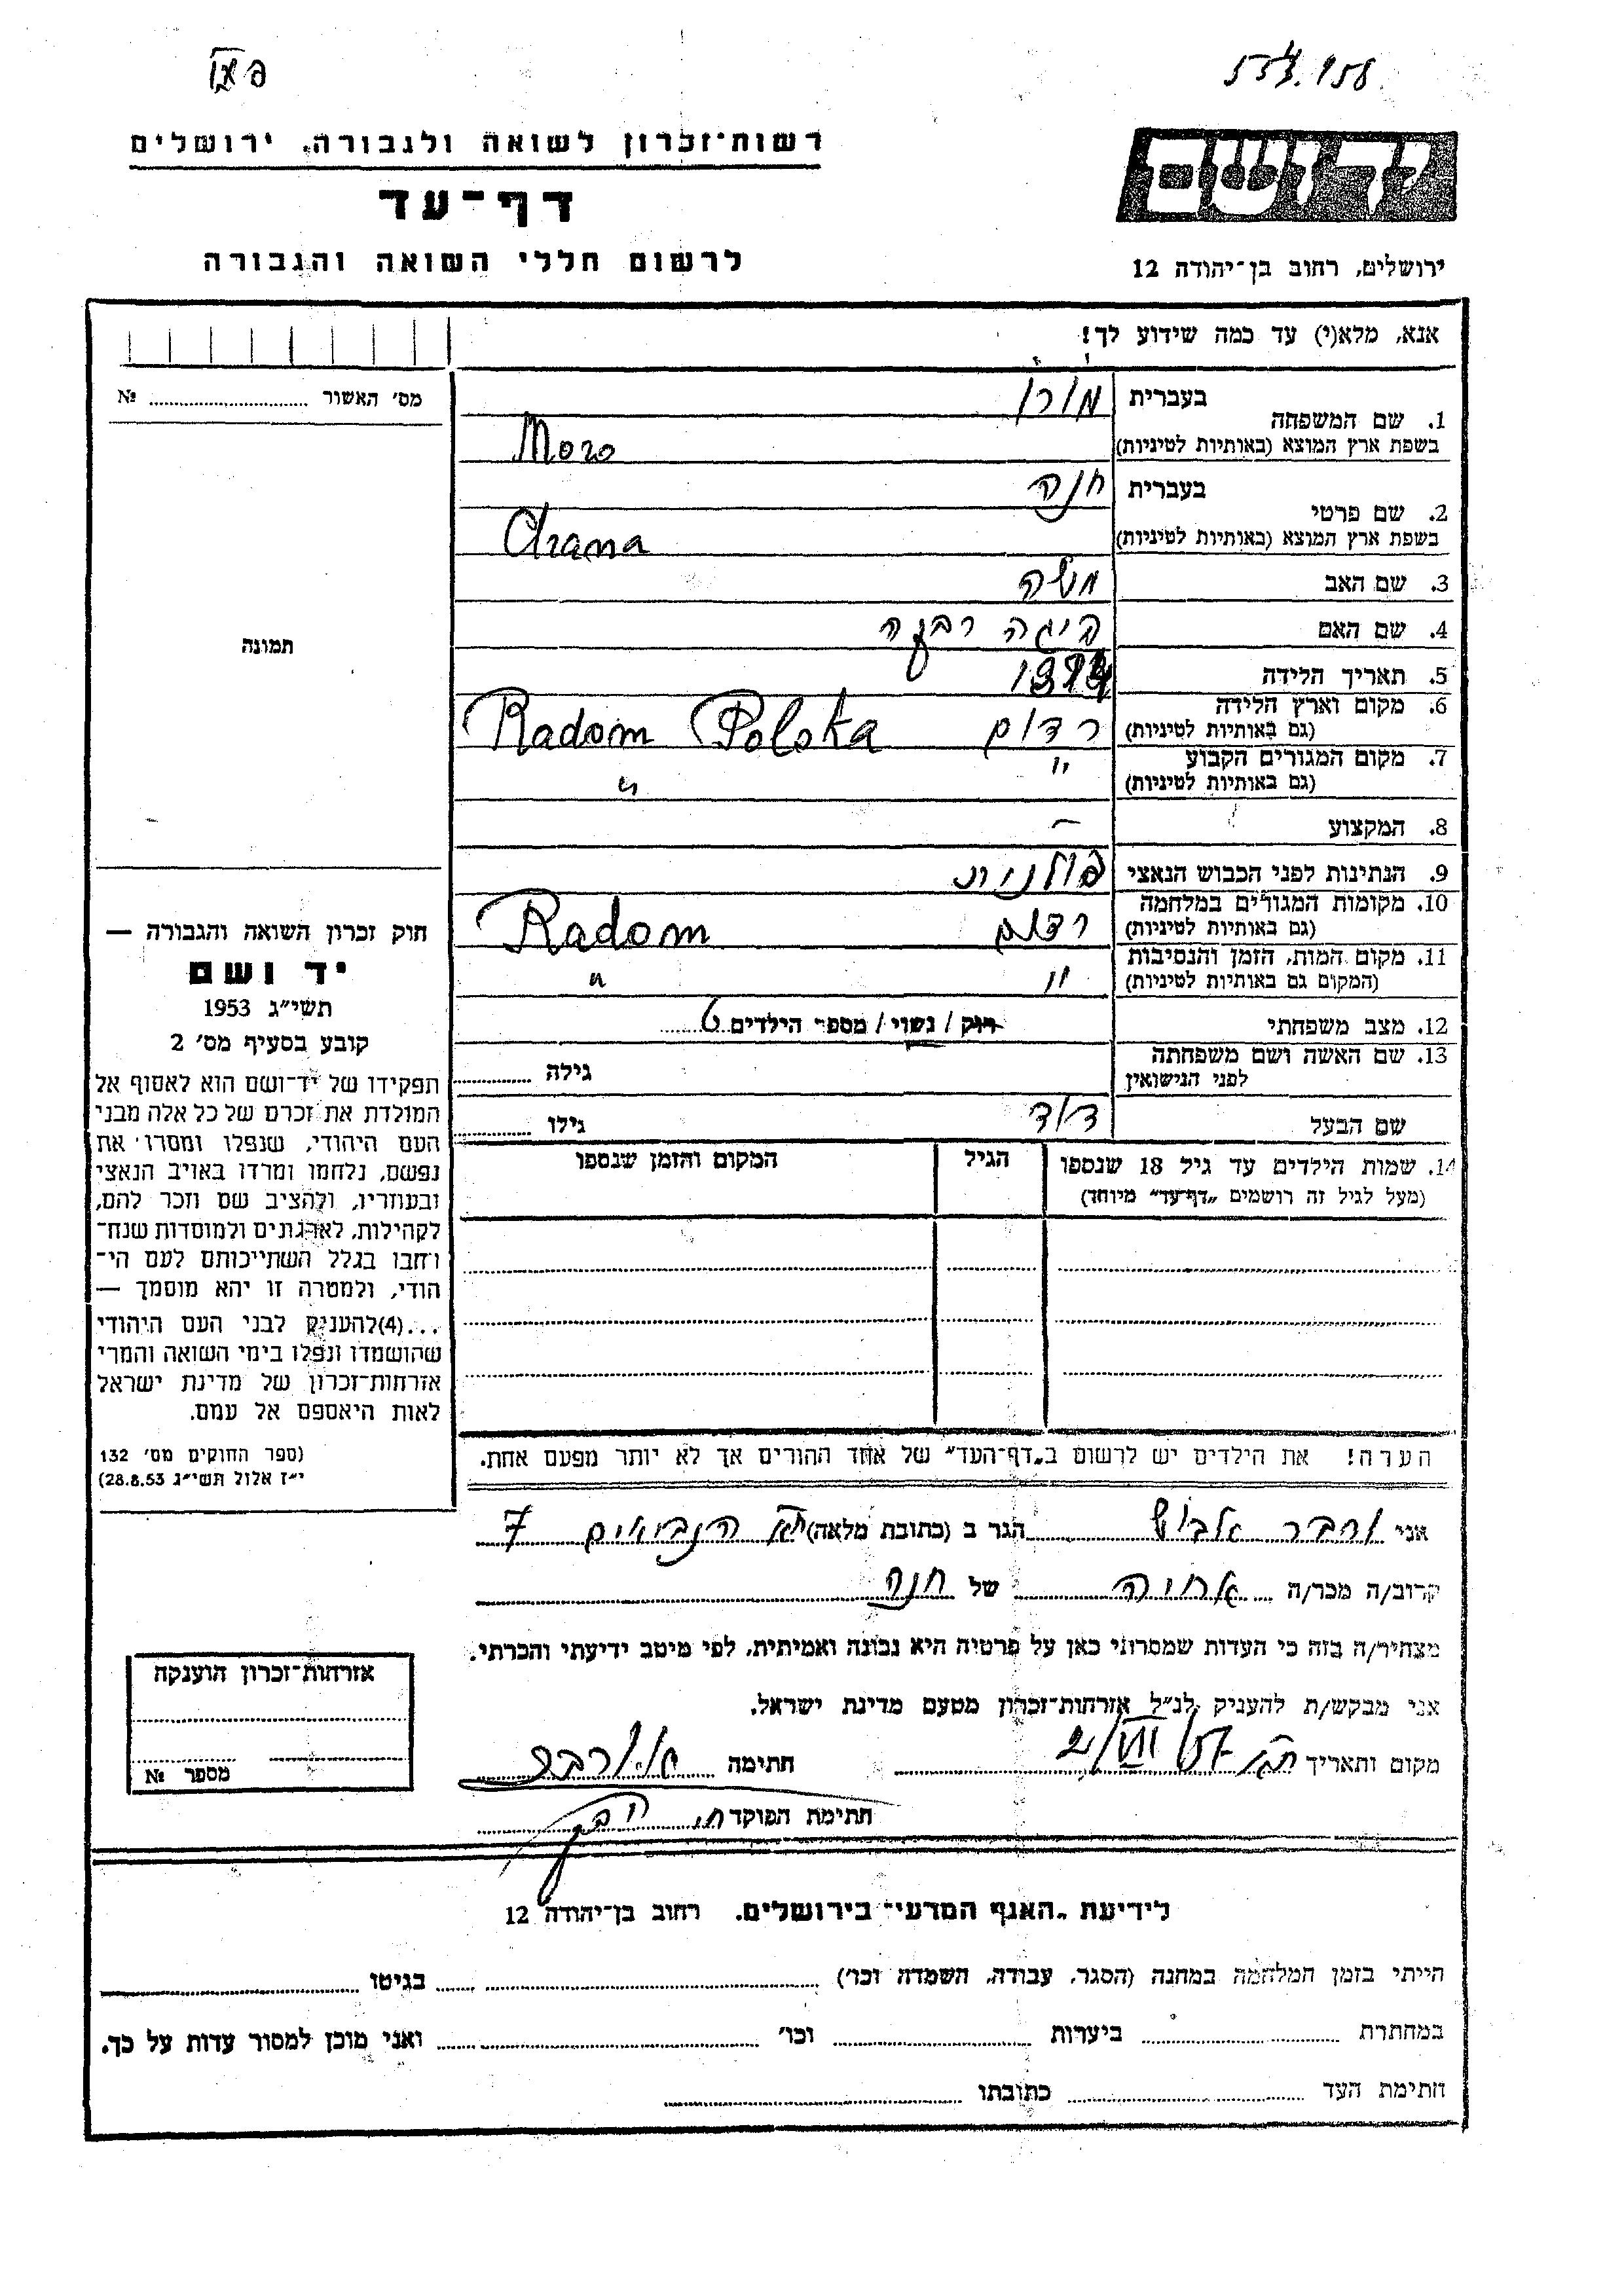 רשות־זכרון לשואה ולגבורה, ירושלים
יד ושם
דף־עד
לרשום חללי השואה והגבורה
ירושלים, רחוב בן־יהודה 12
אנא, מלא(י) עד כמה שידוע לך!
מס׳ האשור № 
1. שם המשפחה
בעברית
בשפת ארץ המוצא (באותיות לטיניות)
Moro
2. שם פרטי
בעברית חנה
בשפת ארץ המוצא (באותיות לטיניות)
Chana
3. שם האב משה
4. שם האם
5. תאריך הלידה
6. מקום וארץ הלידה
(גם באותיות לטיניות)
רדום Radom Polska
7. מקום המגורים הקבוע
(גם באותיות לטיניות)
" "
8. המקצוע —
9. הנתינות לפני הכבוש הנאצי פולנית
10. מקומות המגורים במלחמה
(גם באותיות לטיניות)
רדום Radom
11. מקום המות, הזמן והנסיבות
(המקום גם באותיות לטיניות)
" "
12. מצב משפחתי רוק / נשוי / מספר הילדים 6
13. שם האשה ושם משפחתה
לפני הנישואין
גילה
שם הבעל דוד גילו
14. שמות הילדים עד גיל 18 שנספו
(מעל לגיל זה רושמים „דף־עד״ מיוחד)
הגיל
המקום והזמן שנספו
הערה! את הילדים יש לרשום ב„דף־העד״ של אחד ההורים אך לא יותר מפעם אחת.
תמונה
חוק זכרון השואה והגבורה —
יד ושם
תשי״ג 1953
קובע בסעיף מס׳ 2
תפקידו של יד־ושם הוא לאסוף אל
המולדת את זכרם של כל אלה מבני
העם היהודי, שנפלו ומסרו את
נפשם, נלחמו ומרדו באויב הנאצי
ובעוזריו, ולהציב שם וזכר להם,
לקהילות, לארגונים ולמוסדות שנח־
רחבו בגלל השתייכותם לעם הי־
הודי, ולמטרה זו יהא מוסמך —
...(4)להעניק לבני העם היהודי
שהושמדו ונפלו בימי השואה והמרי
אזרחות־זכרון של מדינת ישראל
לאות היאספם אל עמם.
(ספר החוקים מס׳ 132
י״ז אלול תשי״ג 28.8.53)
אני הגר ב (כתובת מלאה) ת״א הנביאים 7
קרוב/ה מכר/ה אחיה של חנה
מצהיר/ה בזה כי העדות שמסרתי כאן על פרטיה היא נכונה ואמיתית, לפי מיטב ידיעתי והכרתי.
אני מבקש/ת להעניק לנ״ל אזרחות־זכרון מטעם מדינת ישראל.
מקום ותאריך 2/VII/57 חתימה
חתימת הפוקד
אזרחות־זכרון הוענקה
מספר №
לידיעת „האגף המדעי״ בירושלים. רחוב בן־יהודה 12
הייתי בזמן המלחמה במחנה (הסגר, עבודה, השמדה וכו׳) בגיטו
במחתרת ביערות וכו׳ ואני מוכן למסור עדות על כך.
חתימת העד כתובתו